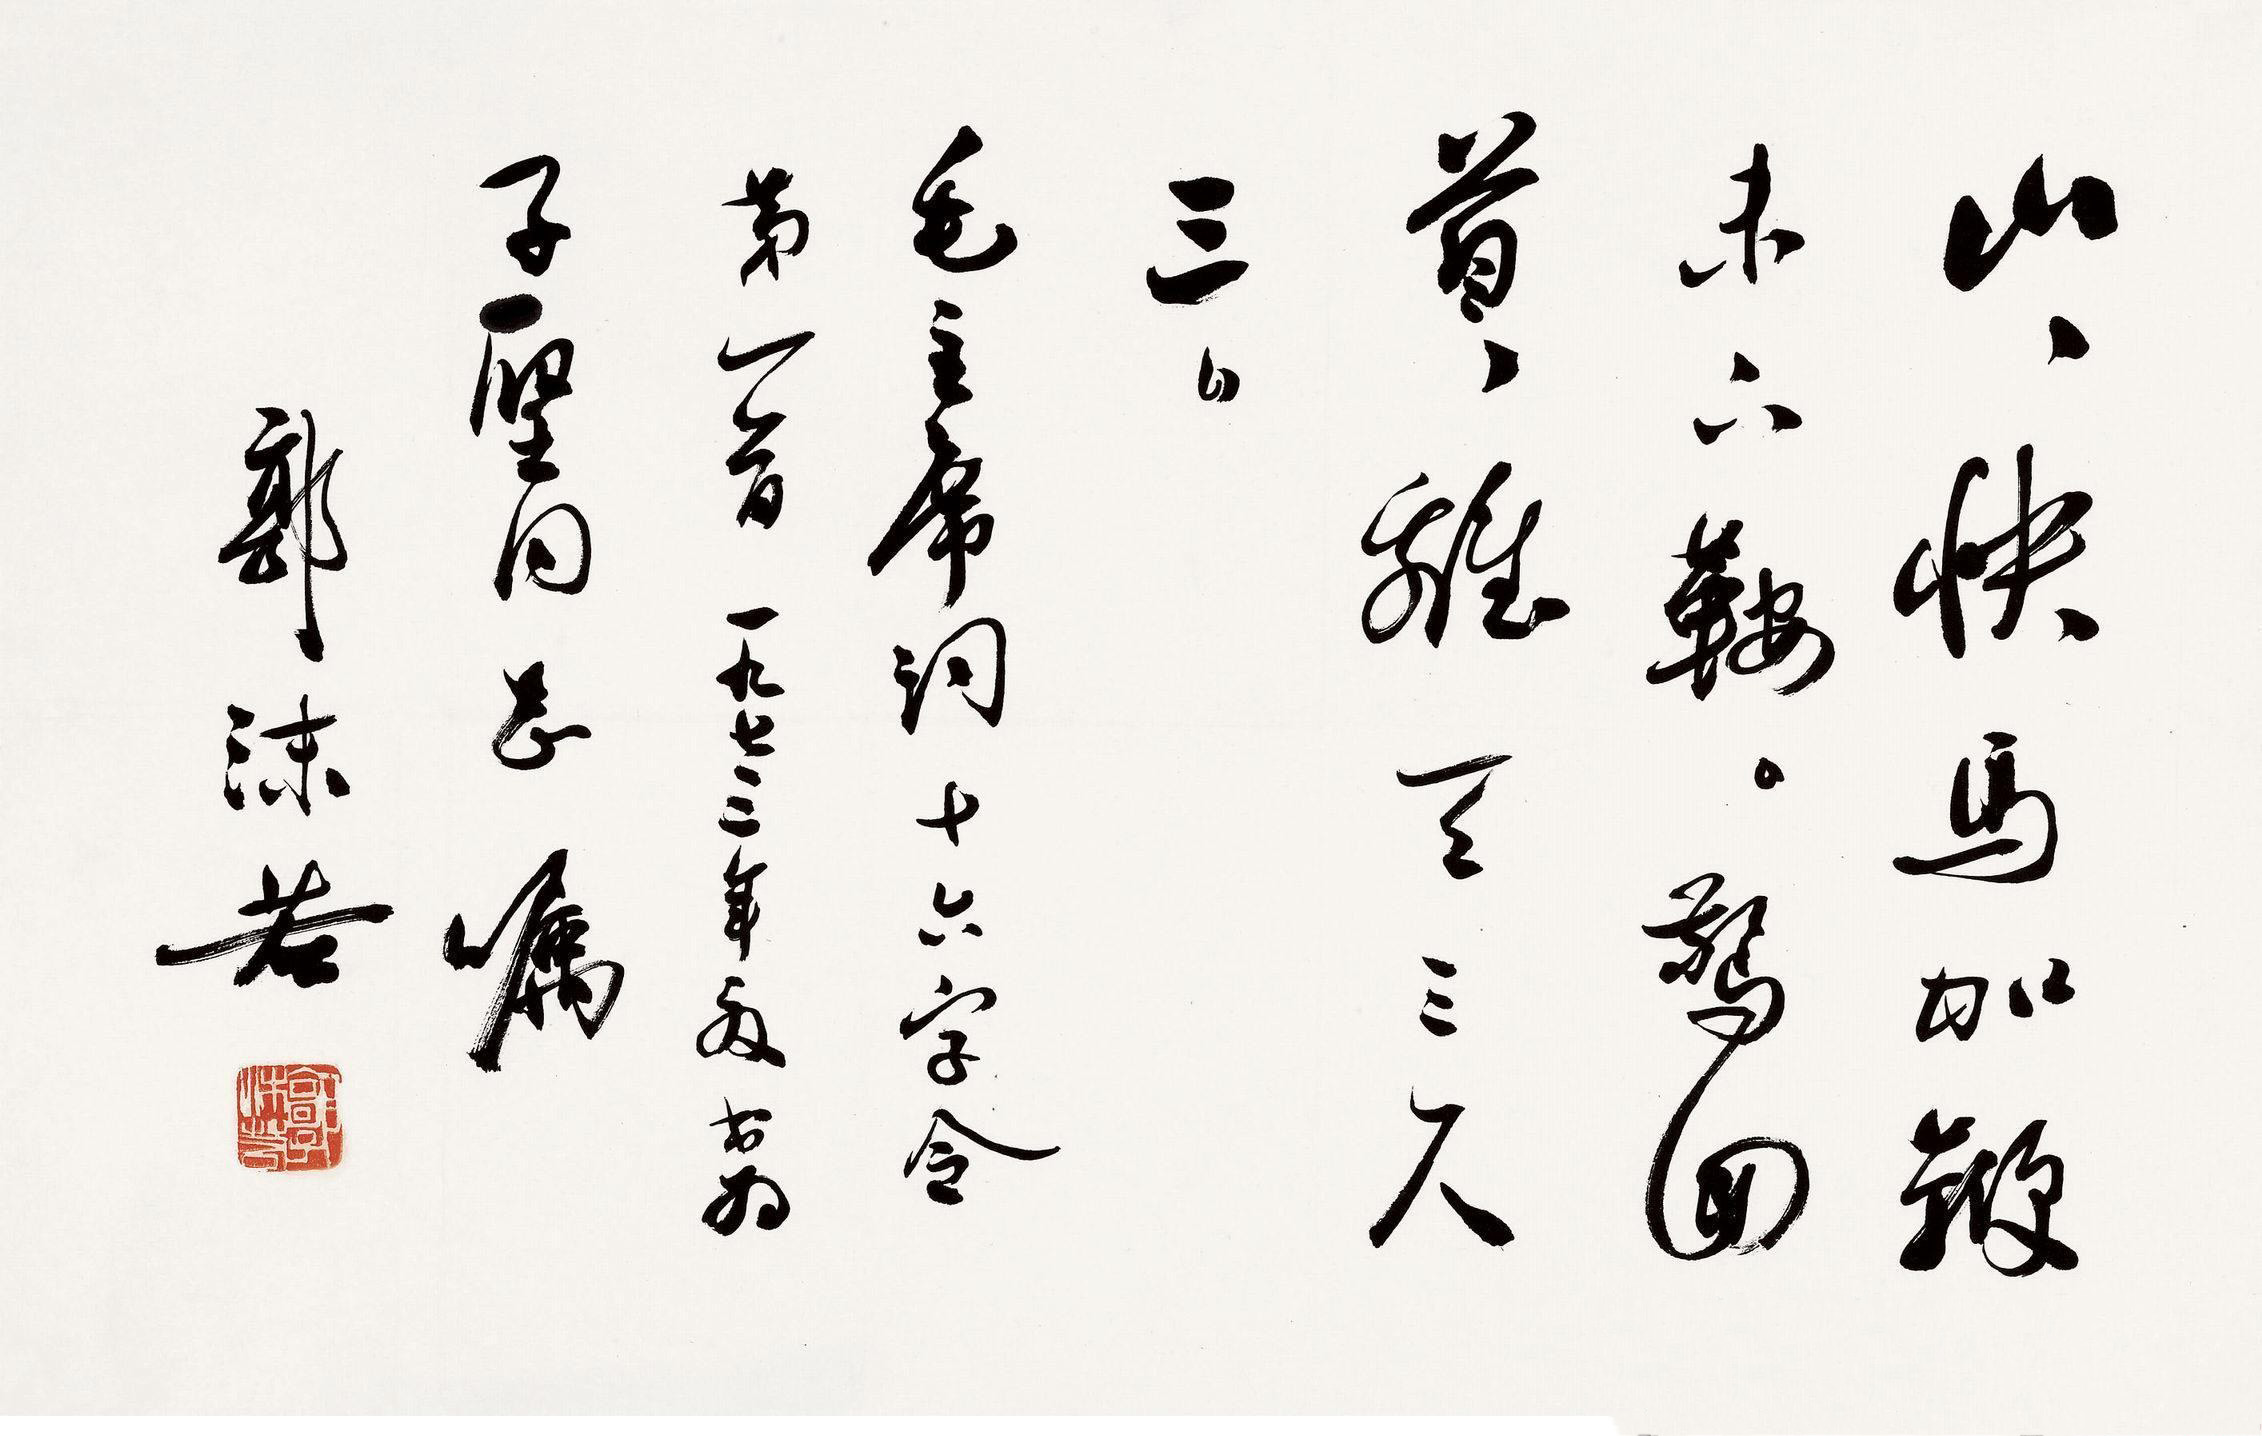 山、快馬加鞭
未下鞍。驚回
首、離天三尺
三。
毛主席词十六字令
第一首 一九七三年夏书为
子堅同志嘱
郭沫若
郭沫若